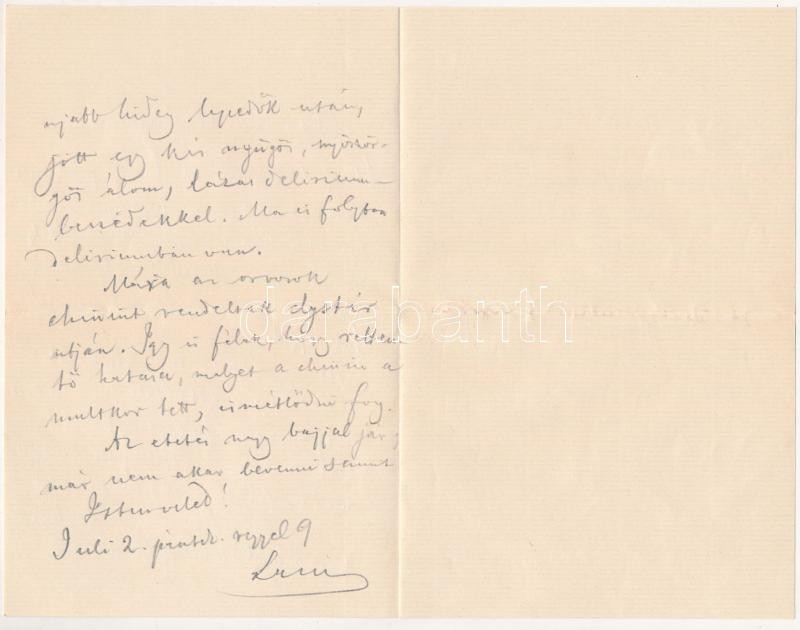 ujabb hideg lepedők után,
jött egy kis nyügös, nyöször-
gős álom, lázas delirium-
beszédekkel. Ma is folyton
deliriumban van.
az orvosok
chinint rendeltek clystér
utján. Igy is félek, hogy retten
tő hatása, melyet a chinin a
multkor tett, ismétlődni fog.
Az etetés nagy bajjal jár
már nem akar bevenni semmit
Istenveled!
Juli 2. péntek reggel 9
darabanth